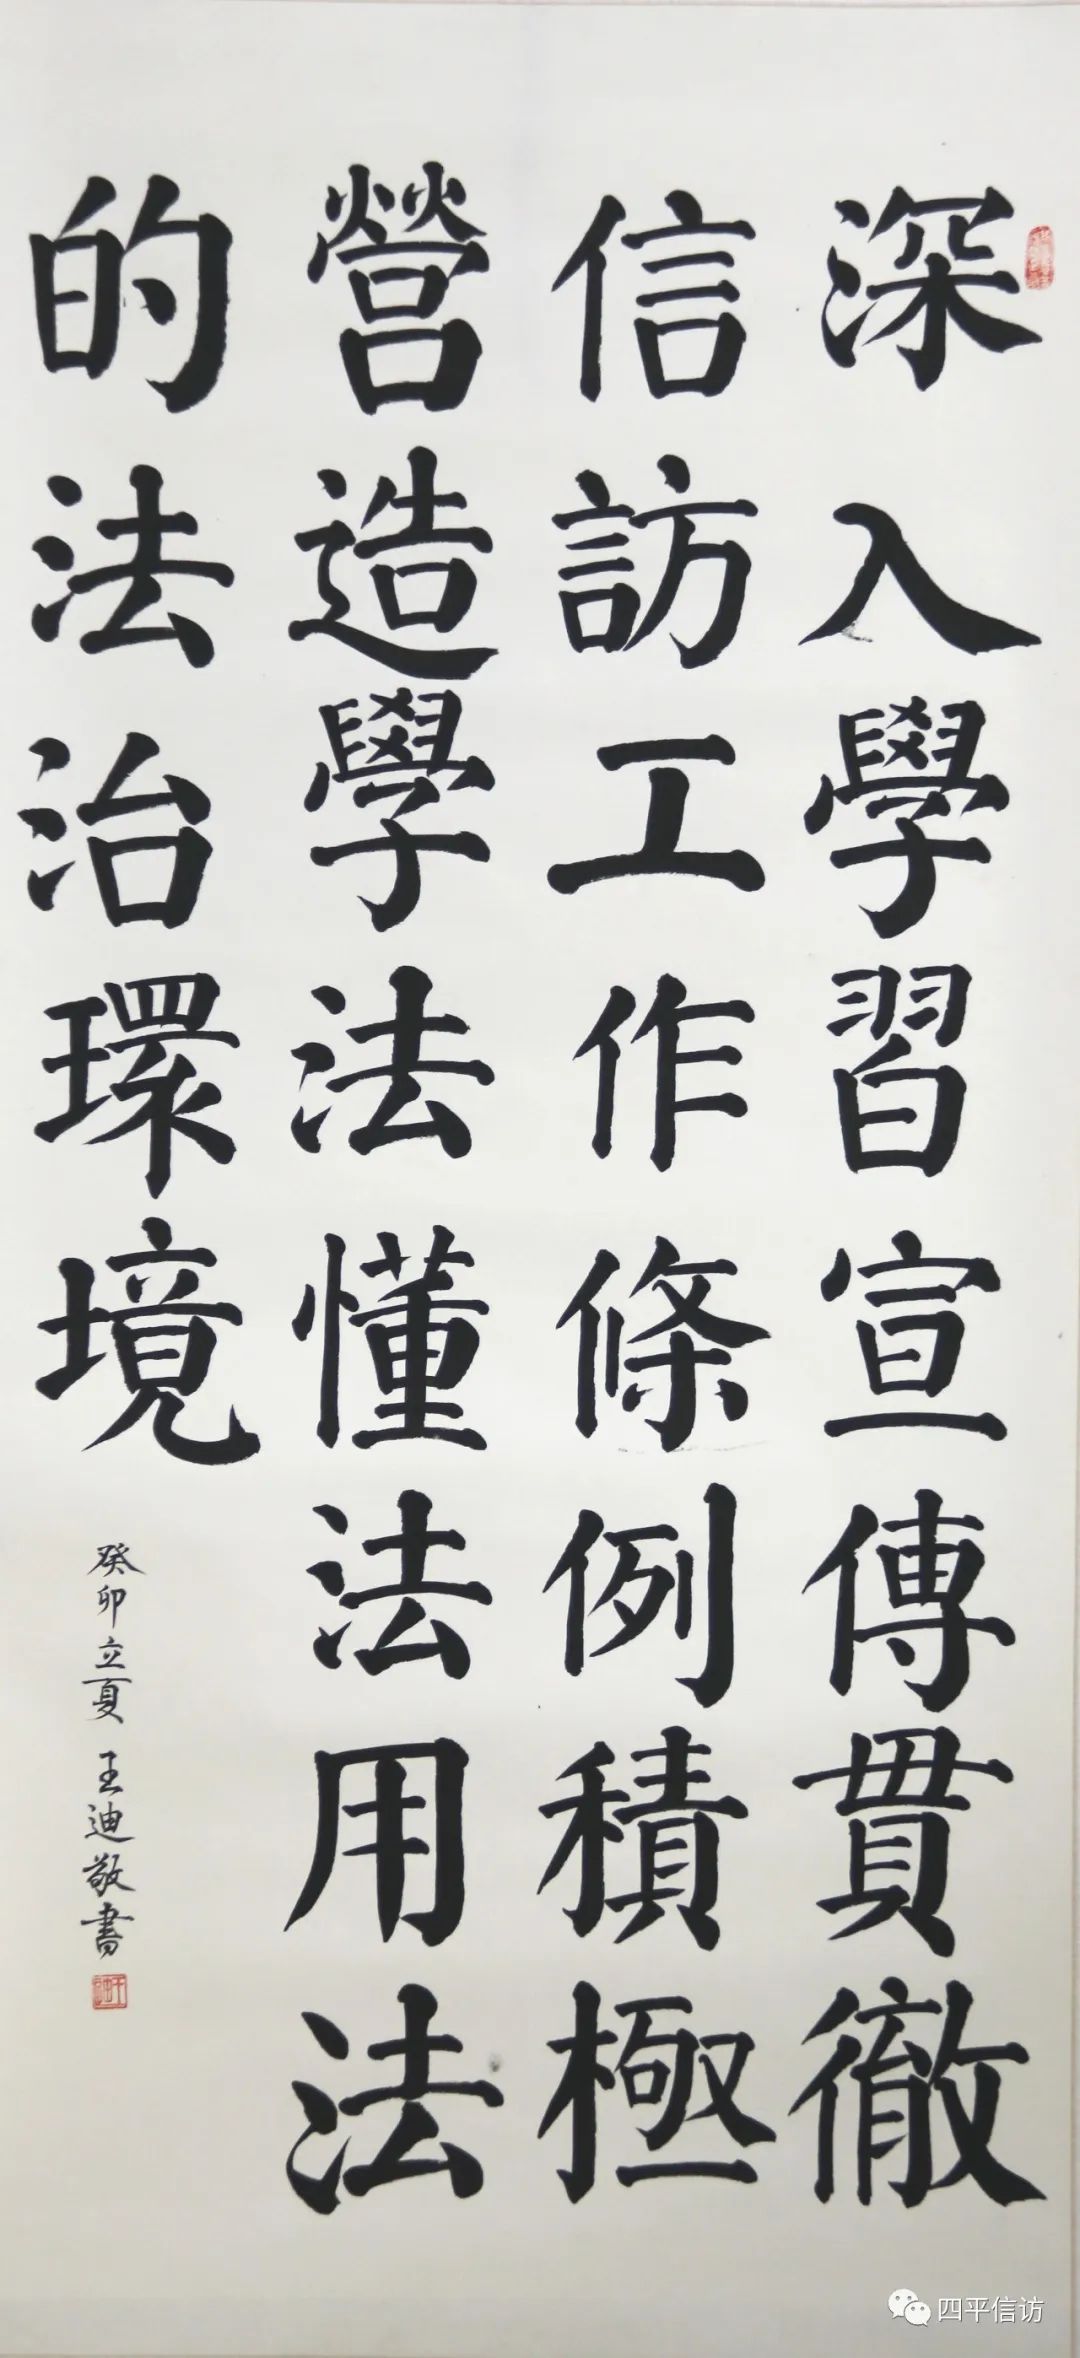 深入學習宣傳貫徹
信訪工作條例積極
營造學法懂法用法
的法治環境
癸卯立夏 王迪敬書
四平信访